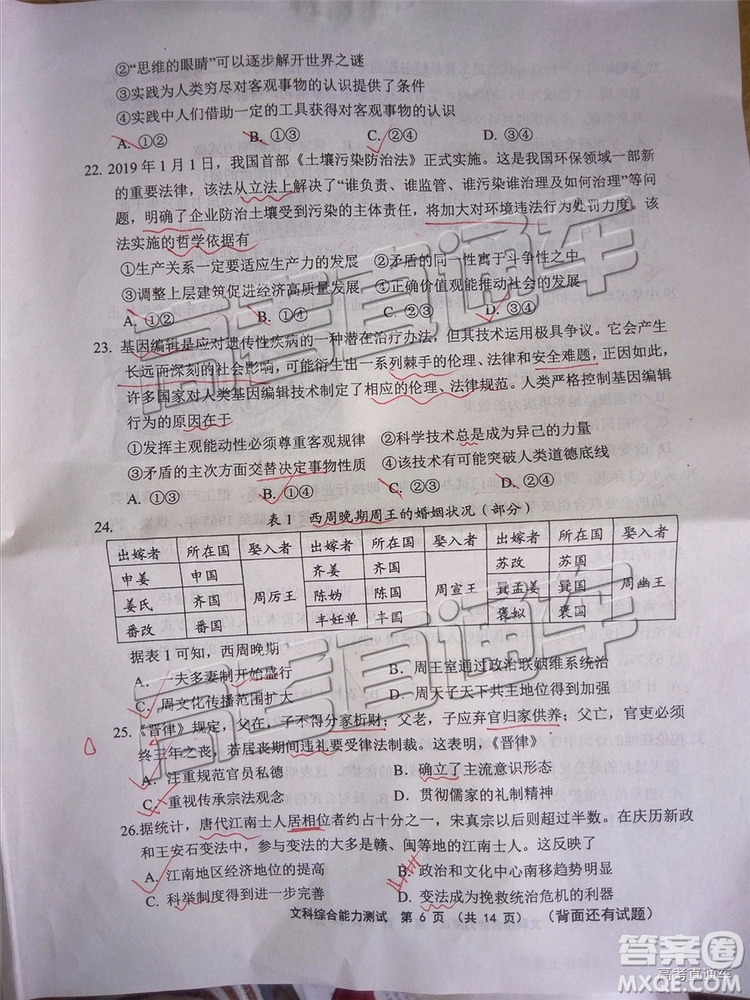 ②“思维的眼睛”可以逐步解开世界之谜
③实践为人类穷尽对客观事物的认识提供了条件
④实践中人们借助一定的工具获得对客观事物的认识
A. ①② B. ①③ C. ②④ D. ③④
22. 2019年1月1日，我国首部《土壤污染防治法》正式实施。这是我国环保领域一部新
的重要法律，该法从立法上解决了“谁负责、谁监管、谁污染谁治理及如何治理”等问
题，明确了企业防治土壤受到污染的主体责任，将加大对环境违法行为处罚力度。该
法实施的哲学依据有
①生产关系一定要适应生产力的发展 ②矛盾的同一性寓于斗争性之中
③调整上层建筑促进经济高质量发展 ④正确价值观能推动社会的发展
A. ①② B. ①④ C. ②③ D. ③④
23. 基因编辑是应对遗传性疾病的一种潜在治疗办法，但其技术运用极具争议。它会产生
长远而深刻的社会影响，可能衍生出一系列棘手的伦理、法律和安全难题，正因如此，
许多国家对人类基因编辑技术制定了相应的伦理、法律规范。人类严格控制基因编辑
行为的原因在于
①发挥主观能动性必须尊重客观规律 ②科学技术总是成为异己的力量
③矛盾的主次方面交替决定事物性质 ④该技术有可能突破人类道德底线
A. ①③ B. ①④ C. ②③ D. ②④
24. 表1 西周晚期周王的婚姻状况（部分）
出嫁者 所在国 娶入者 出嫁者 所在国 娶入者 出嫁者 所在国 娶入者
申姜 申国 周厉王 齐姜 齐国 周宣王 苏改 苏国 周幽王
姜氏 齐国 陈妫 陈国 㠱孟姜 㠱国
番改 番国 丰妊单 丰国 褒姒 褒国
据表1可知，西周晚期
A. 一夫多妻制开始盛行 B. 周王室通过政治联姻维系统治
C. 周文化传播范围扩大 D. 周天子天下共主地位名存实亡
25. 《晋律》规定，父在，子不得分家析财；父老，子应弃官归家供养；父亡，官吏必须
终三年之丧。若居丧期间违礼要受律法制裁。这表明，《晋律》
A. 注重规范官员私德 B. 确立了主流意识形态
C. 重视传承宗法观念 D. 贯彻儒家的礼制精神
26.据统计，唐代江南士人居相位者约占十分之一，宋真宗以后则超过半数。在庆历新政
和王安石变法中，参与变法的大多是赣、闽等地的江南士人。这反映了
A. 江南地区经济地位的提高 B. 政治和文化中心南移趋势明显
C. 科举制度得到进一步完善 D. 变法成为挽救统治危机的利器
文科综合能力测试 第6页（共14页） （背面还有试题）
高考直通车
高考直通车
高考直通车
答案圈
高考直通车
MXQE.COM